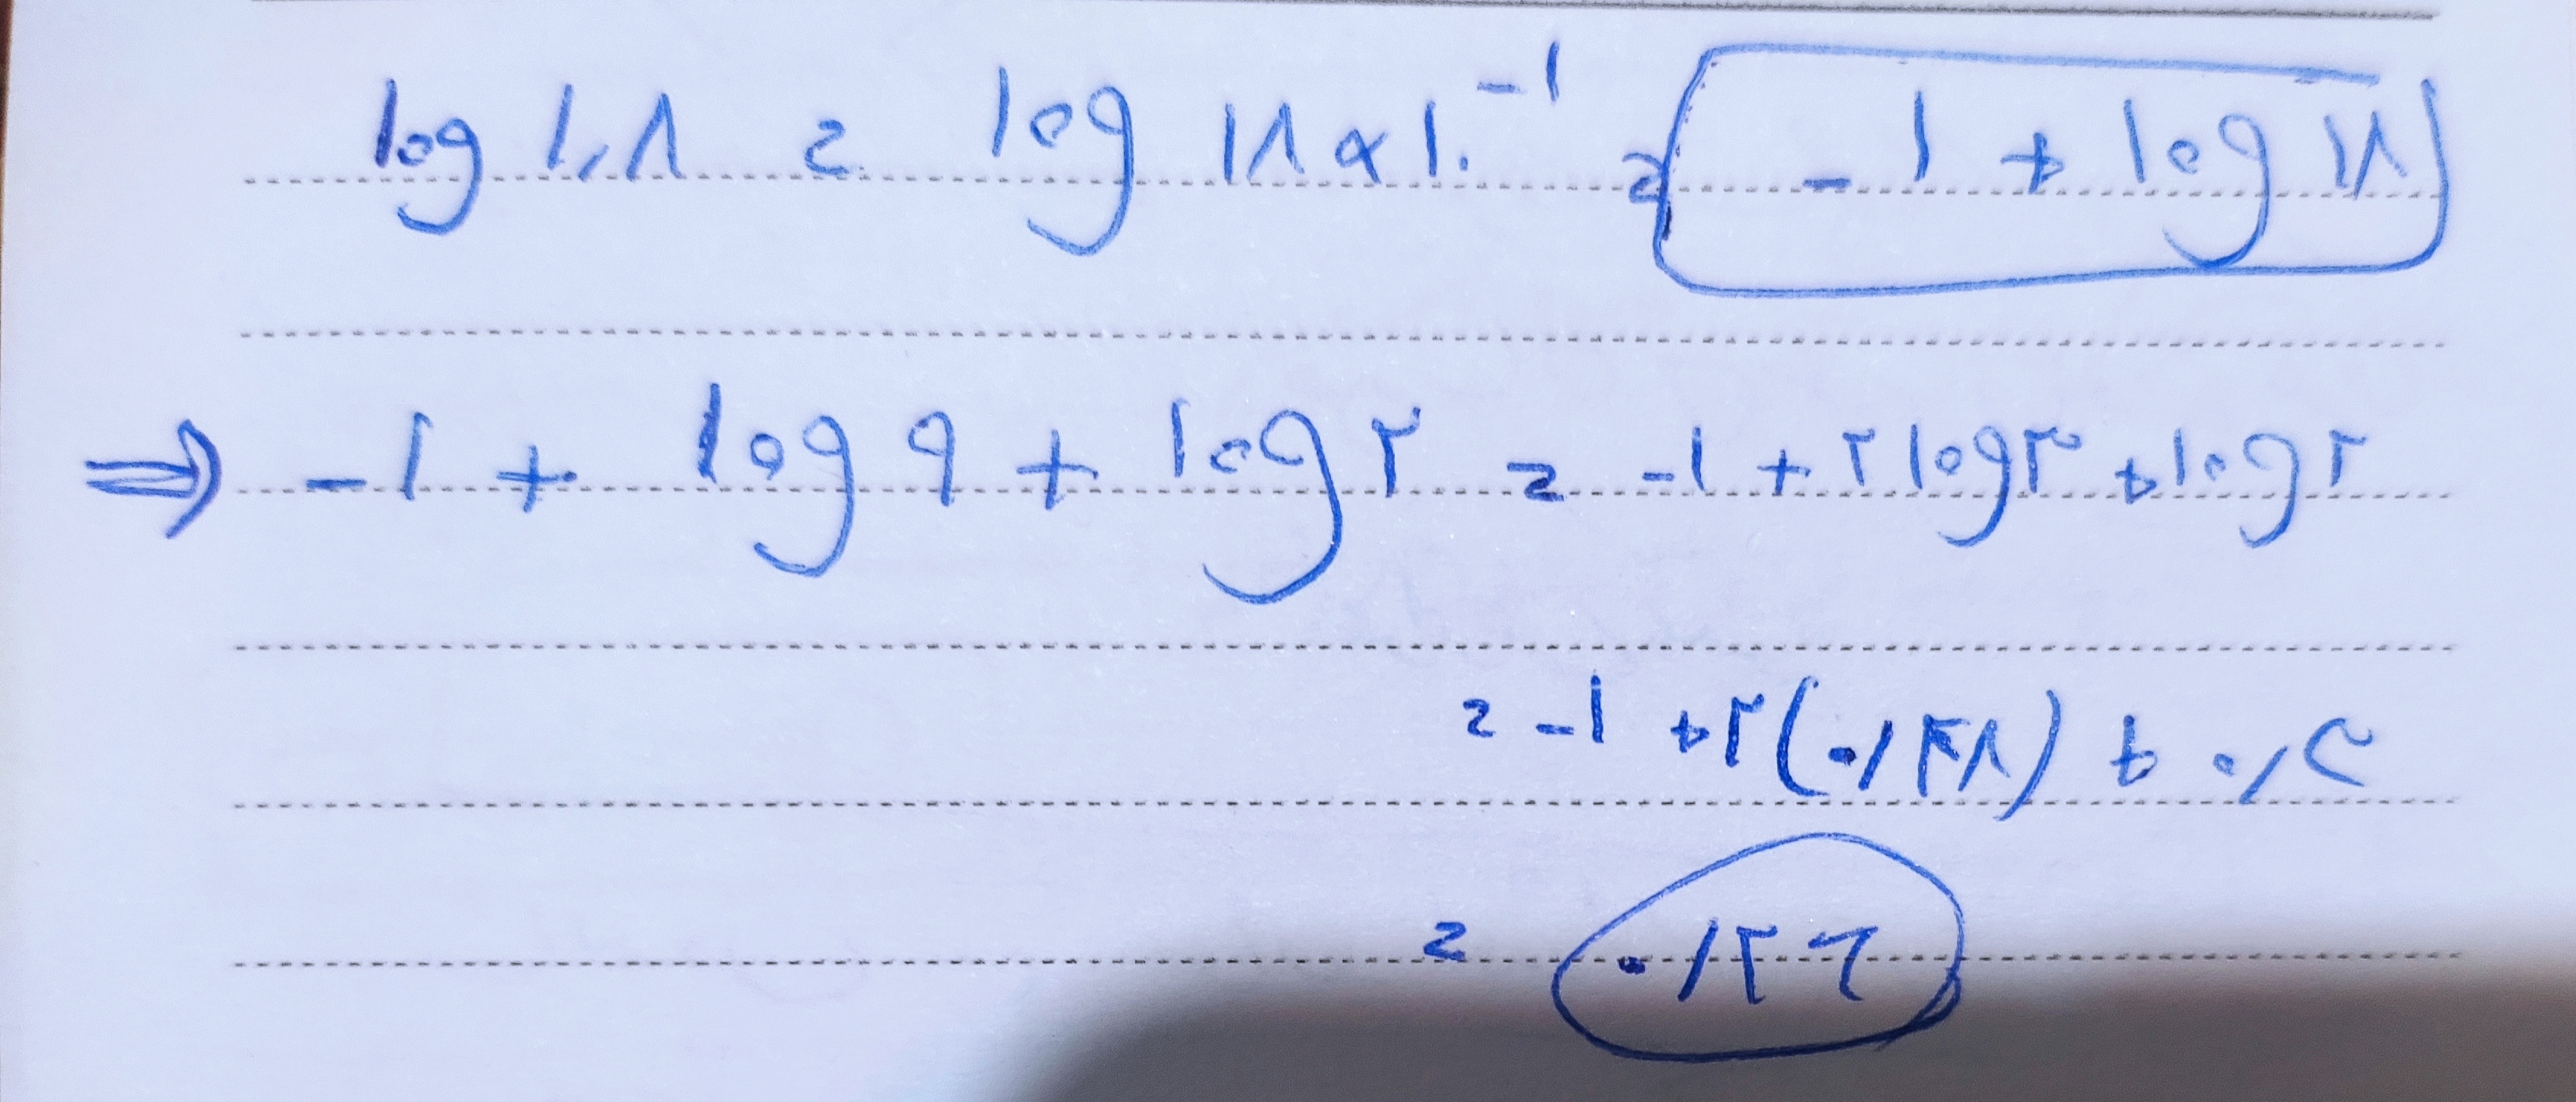 log ۱٫۸ = log ۱۸ × ۱۰⁻¹ = -۱ + log ۱۸
⇒ -۱ + log ۹ + log ۲ = -۱ + ۲ log ۳ + log ۲
= -۱ + ۲(۰/۴۸) + ۰/۳
= ۰/۲۶